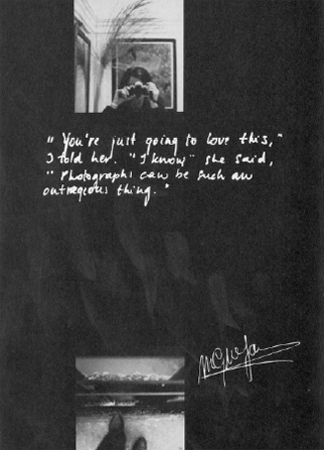 "You're just going to love this,"
I told her. "I know" she said,
"Photographs can be such an
outrageous thing."